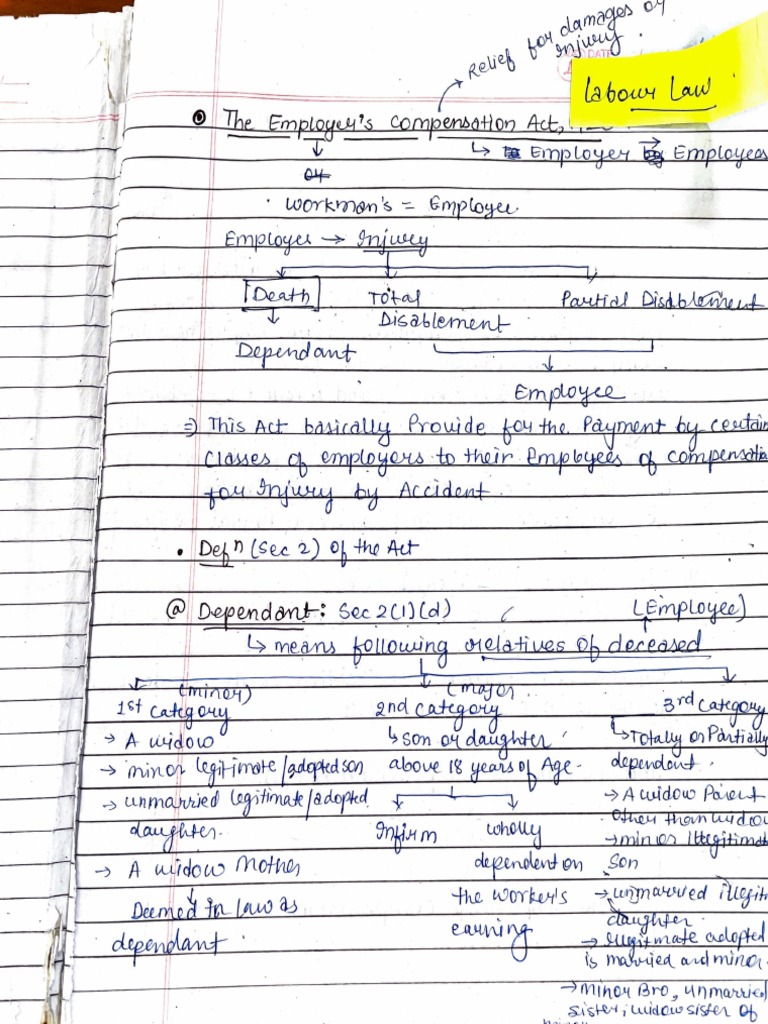 Relief for damages or
injury.
DATE
Labour Law
The Employer's Compensation Act,
↳ Employer → Employees
or
Workman's = Employee.
Employer → Injury
Death Total Partial Disablement
Disablement
Dependant
Employee
⇒ This Act basically Provide for the Payment by certain
classes of employers to their Employees of compensatio
for Injury by Accident.
• Defn (Sec 2) of the Act
@ Dependant: Sec 2(1)(d) (Employee)
↳ means following relatives of deceased
(minor) (major
1st category 2nd category 3rd category
→ A widow ↳ son or daughter ↳ Totally or Partially
→ minor legitimate/adopted son above 18 years of Age. dependent.
→ unmarried legitimate/adopted → A widow Parent
daughter. Infirm wholly other than widow
→ minor illegitimate
→ A widow Mother dependent on son
Deemed in law as the worker's → unmarried illegit
dependant earning daughter.
→ illegitimate adopted
is married and minor.
→ minor Bro, unmarried
sister, widow sister of